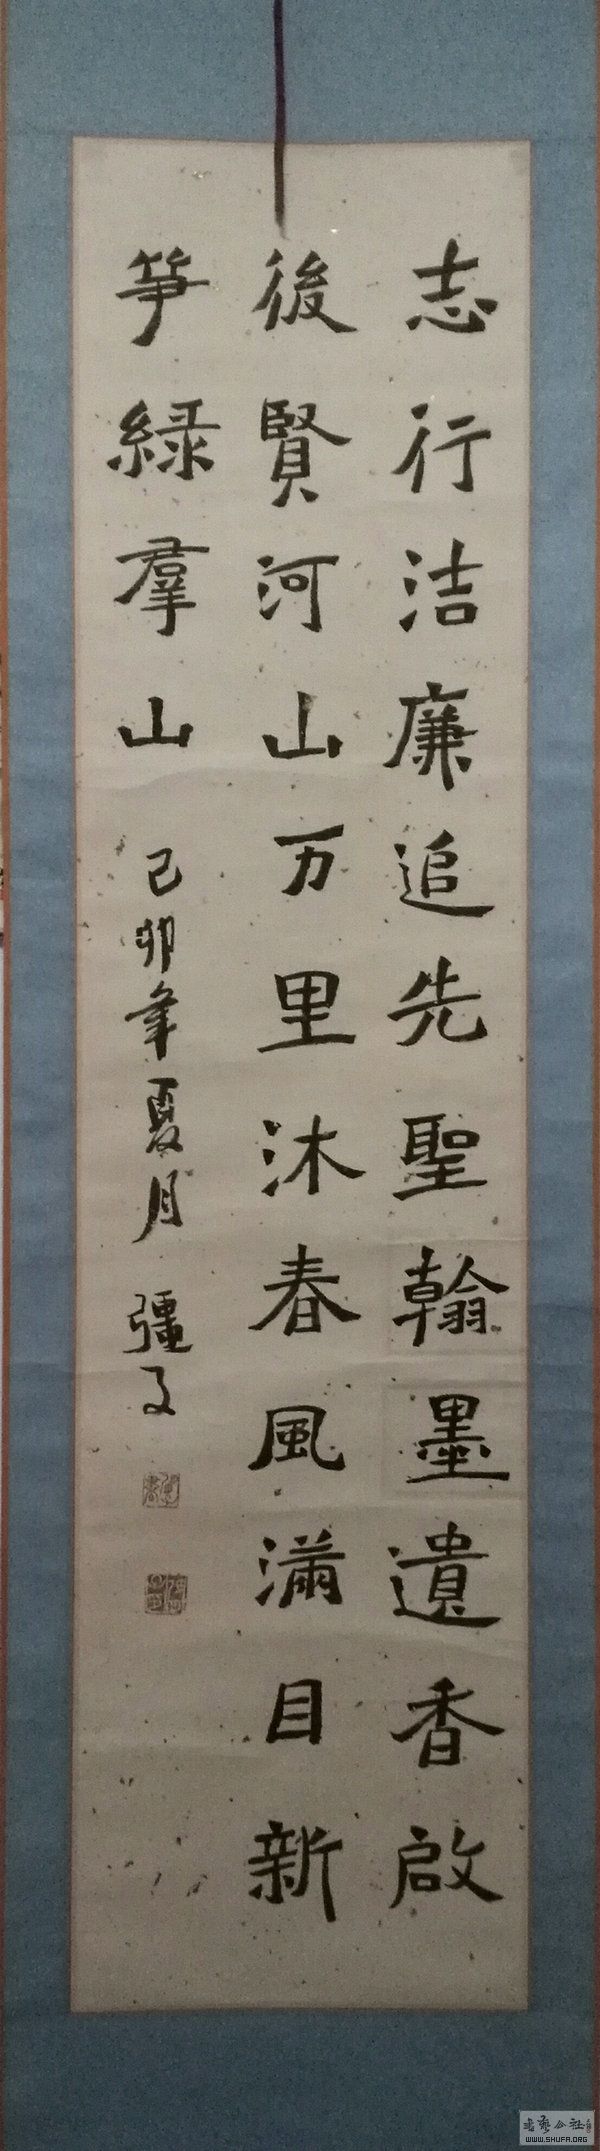 志行洁廉追先聖翰墨遺香啟
後賢河山万里沐春風滿目新
笋綠羣山
己卯年夏月 彊又
書藝公社
WWW.SHUFA.ORG